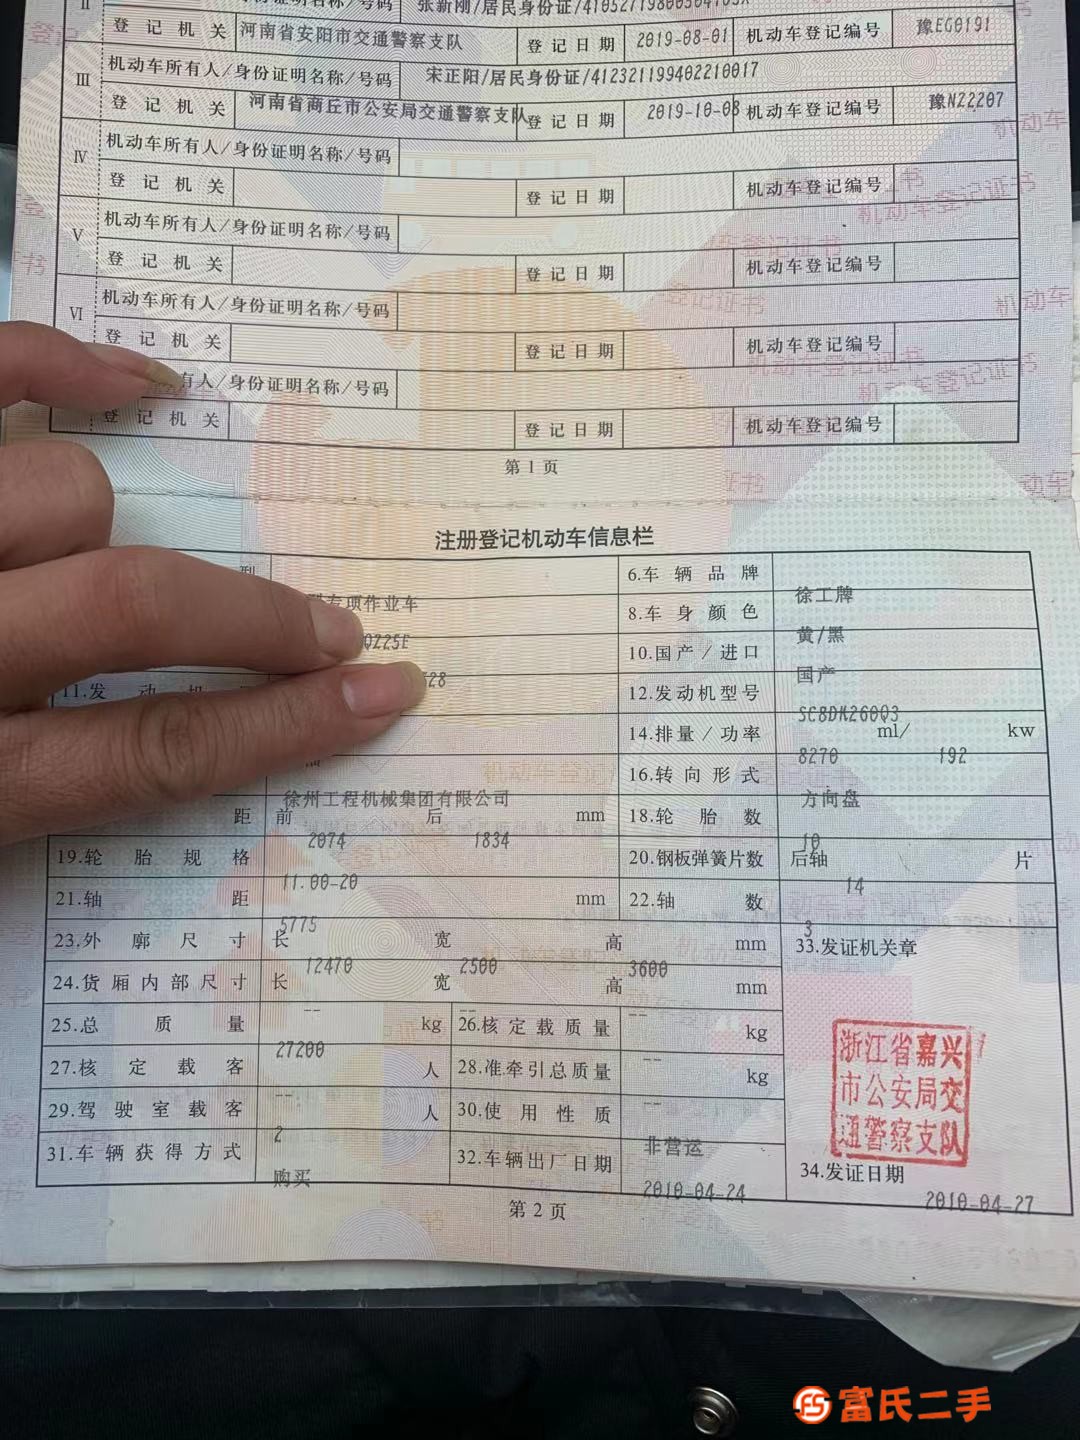 II 机动车所有人/身份证明名称/号码 张新刚/居民身份证/
登记机关 河南省安阳市交通警察支队 登记日期 2019-08-01 机动车登记编号 豫EG0191
III 机动车所有人/身份证明名称/号码 宋正阳/居民身份证/412321199402210017
登记机关 河南省商丘市公安局交通警察支队 登记日期 2019-10-08 机动车登记编号 豫NZ2207
IV 机动车所有人/身份证明名称/号码
登记机关 登记日期 机动车登记编号
V 机动车所有人/身份证明名称/号码
登记机关 登记日期 机动车登记编号
VI 机动车所有人/身份证明名称/号码
登记机关 登记日期 机动车登记编号
有人/身份证明名称/号码
登记机关 登记日期 机动车登记编号
第1页
注册登记机动车信息栏
型 6.车辆品牌 徐工牌
专项作业车 8.车身颜色 黄/黑
QZ25E 10.国产/进口 国产
11.发动机 28 12.发动机型号 SC8DK260Q3
14.排量/功率 8270 ml/ 192 kw
16.转向形式 方向盘
徐州工程机械集团有限公司
距 前 2074 后 1834 mm 18.轮胎数 10
19.轮胎规格 11.00-20 20.钢板弹簧片数 后轴 14 片
21.轴距 5775 mm 22.轴数 3
23.外廓尺寸 长 12470 宽 2500 高 3600 mm 33.发证机关章
24.货厢内部尺寸 长 -- 宽 -- 高 -- mm
25.总质量 27200 kg 26.核定载质量 -- kg
27.核定载客 -- 人 28.准牵引总质量 -- kg
29.驾驶室载客 2 人 30.使用性质 非营运
31.车辆获得方式 购买 32.车辆出厂日期 2010-04-24
浙江省嘉兴
市公安局交
通警察支队
34.发证日期 2010-04-27
第2页
富氏二手